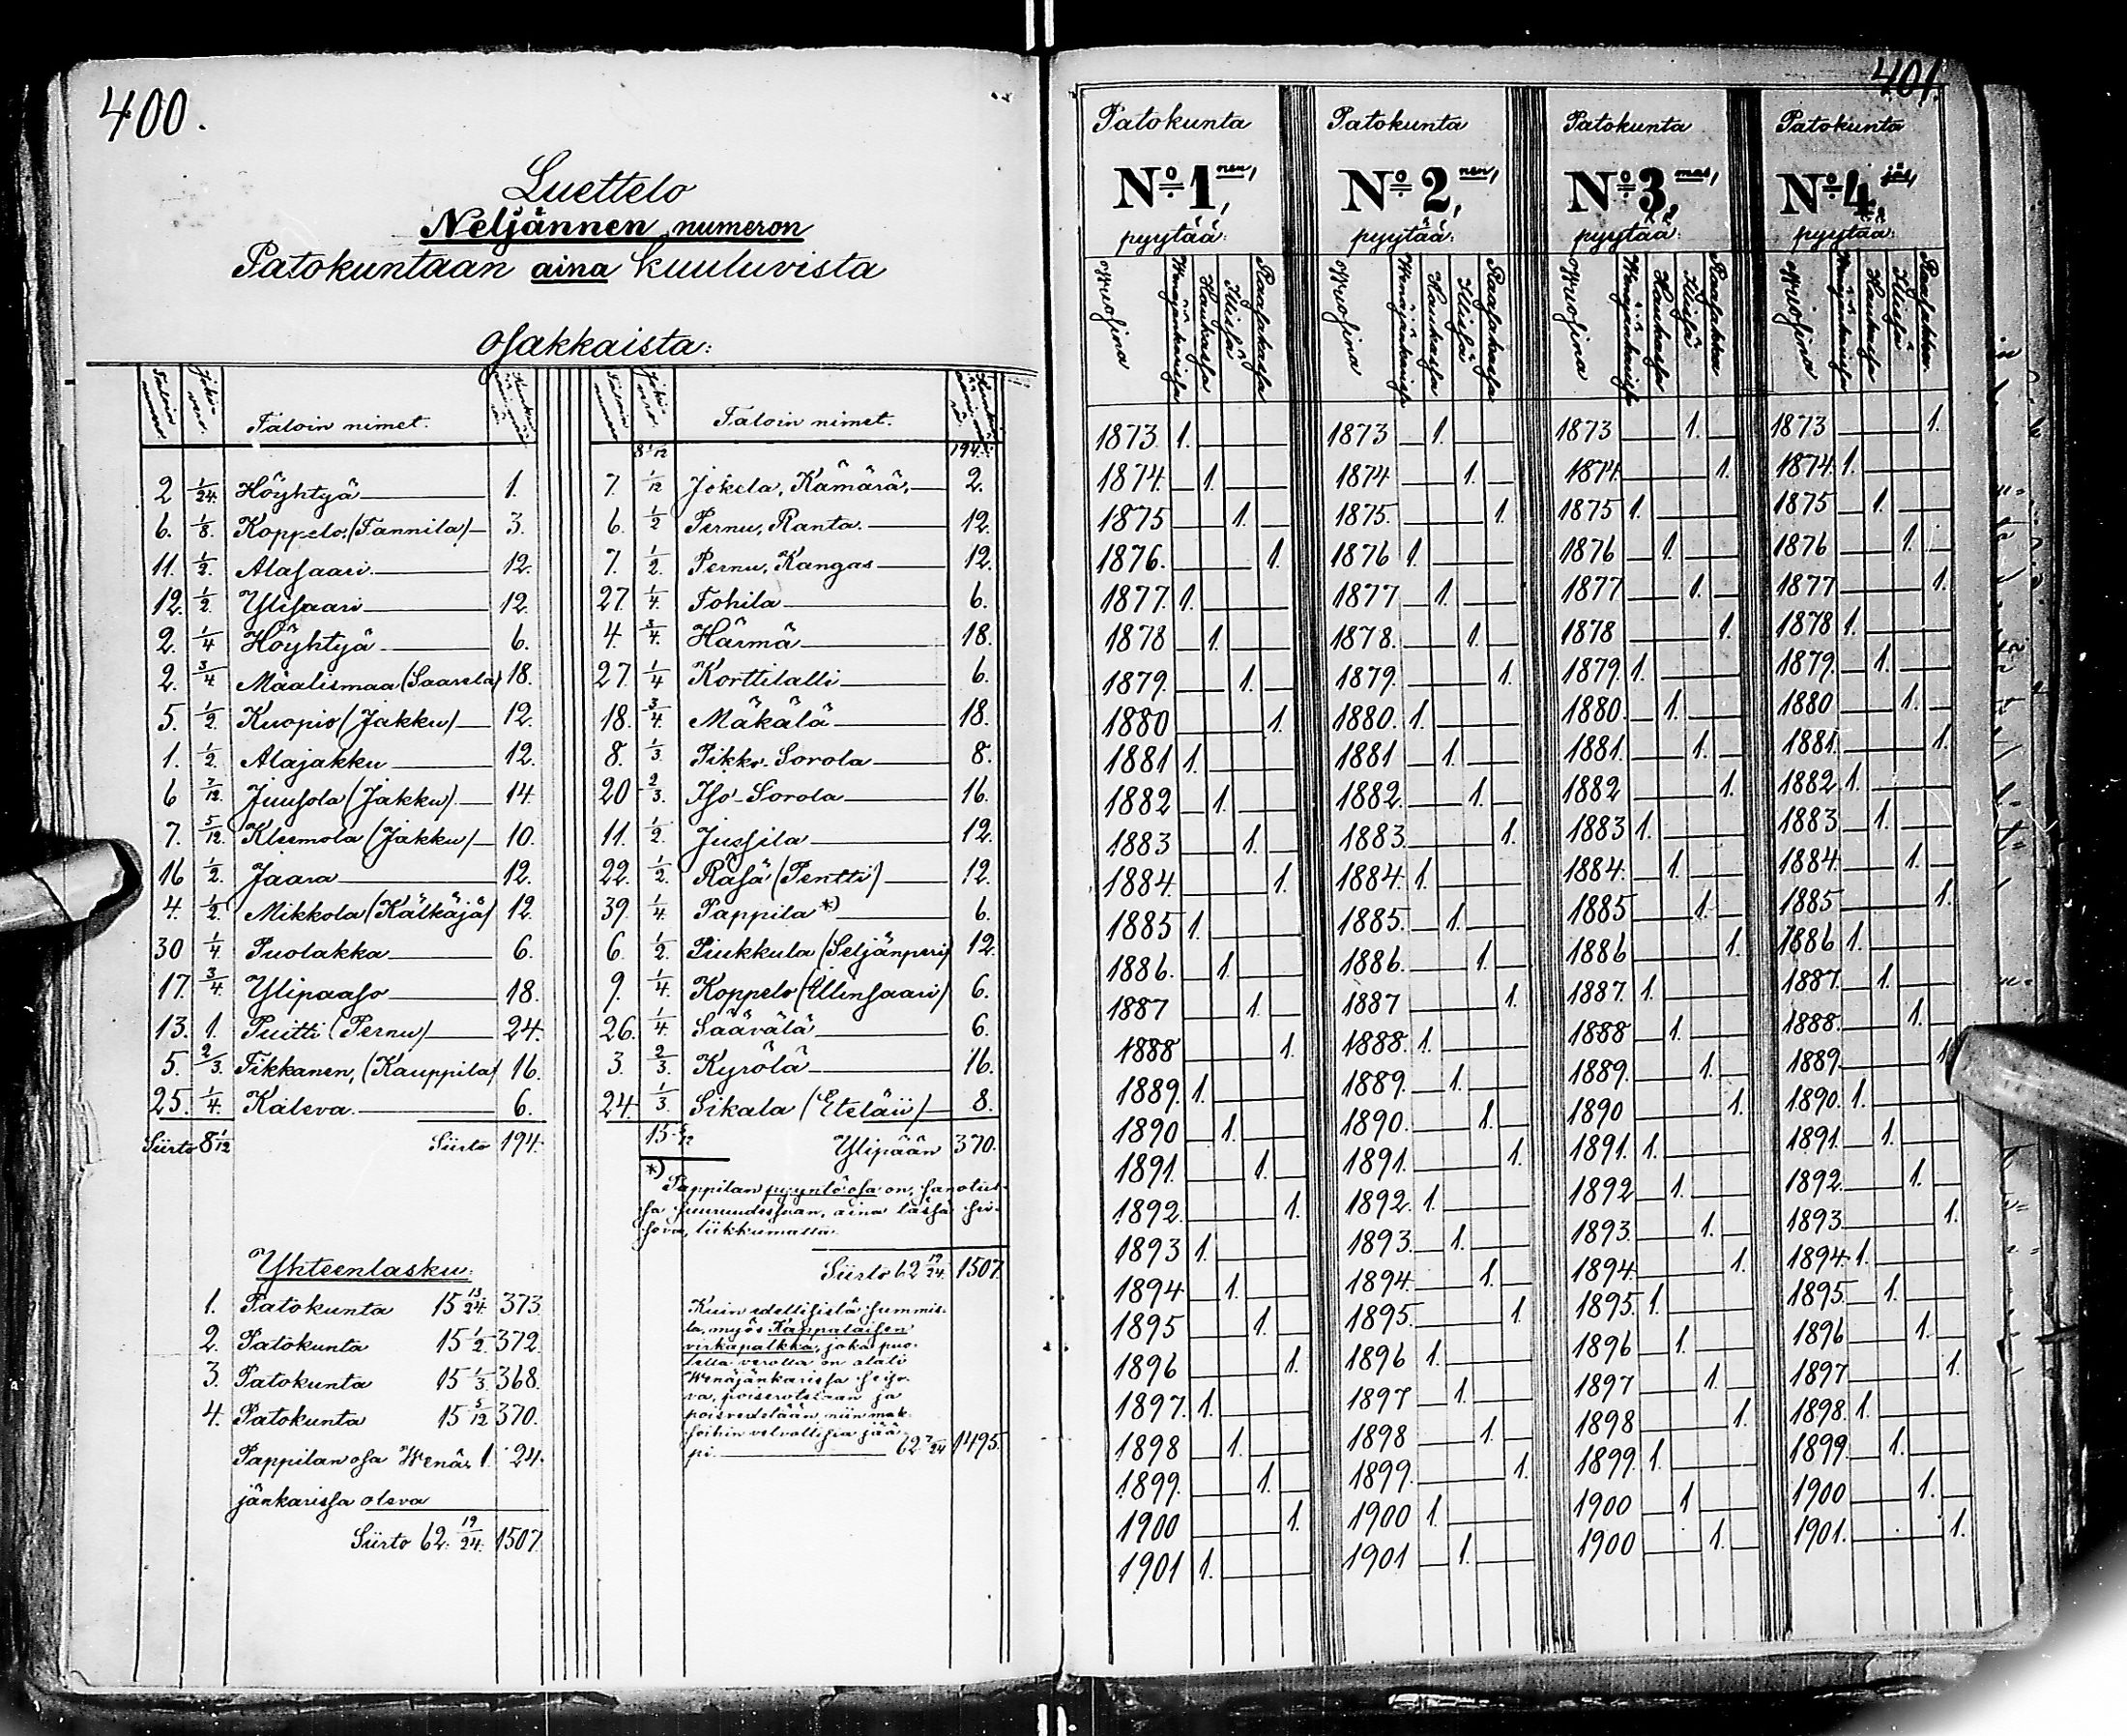 400.
Luettelo
Neljännen numeron
Patokuntaan aina kuuluvista
osakkaista:
Taloin nimet.
2 1/24. Höyhtyä 1.
6. 1/8. Koppelo. (Tannila) 3.
11. 1/2. Alasaari. 12.
12. 1/2. Ylisaari 12.
2. 1/4 Höyhtyä 6.
2. 3/4 Maalismaa (Saarela) 18.
5. 1/2. Kuopio (Jakku) 12.
1. 1/2. Alajakku 12.
6 7/12. Juusola (Jakku) 14.
7. 5/12. Kleemola (Jakku) 10.
16 1/2. Jaara 12.
4. 1/2. Mikkola (Kälkäjä) 12.
30 1/4. Puolakka 6.
17. 3/4. Ylipaaso 18.
13. 1. Puitti (Pernu) 24.
5. 2/3. Tikkanen, (Kauppila) 16.
25. 1/4. Kaleva. 6.
Siirto 8 1/12 Siirto 194.
Yhteenlasku:
1. Patokunta 15 13/24. 373
2. Patokunta 15 1/2. 372.
3. Patokunta 15 1/3. 368.
4. Patokunta 15 5/12 370.
Pappilan osa Wenä 1. 24.
jänkarissa oleva
Siirto 62. 19/24. 1507.
Taloin nimet.
8 1/12 194.
7. 1/12 Jokela, Kämärä, 2.
6. 1/2 Pernu, Ranta. 12.
7. 1/2. Pernu, Kangas 12.
27. 1/4. Tohila 6.
4. 3/4. Härmä 18.
27. 1/4 Korttilalli 6.
18. 3/4. Mäkälä 18.
8. 1/3. Pikko-Sorola 8.
20 2/3. Iso-Sorola 16.
11. 1/2. Jussila 12.
22. 1/2. Räsä (Pentti) 12.
39. 1/4 Pappila *) 6.
6. 1/2. Piukkula (Seljänperi) 12.
9. 1/4. Koppelo (Ullinsaari) 6.
26. 1/4 Säävälä 6.
3. 2/3. Kyrölä 16.
24. 1/3. Sikala (Eteläii) 8.
15 5/12 Ylipään 370.
*) Pappilan pyyntöosa on, sanotus-
sa suuruudessaan, aina tässä sei-
sova, liikkumatta.
Siirto 62 19/24. 1507.
Kuin edellisistä summis-
ta, myös Kappalaisen
virkapalkka, joka puo-
lella verolla on alati
Wenäjänkarissa seiso-
va, poiserotetaan ja
poisvedetään, niin mak-
soihin velvollisia jää-
pi 62 7/24 1495.
401.
Patokunta
No 1 nen,
pyytää:
Wuosina Wenäjänkarissa Haukassa Iliisiä Raasakassa
1873 1.
1874. 1.
1875 1.
1876. 1.
1877. 1.
1878 1.
1879. 1.
1880 1.
1881 1.
1882 1.
1883 1.
1884. 1.
1885 1.
1886. 1.
1887 1.
1888 1.
1889. 1.
1890 1.
1891. 1.
1892. 1.
1893 1.
1894 1.
1895 1.
1896 1.
1897. 1.
1898 1.
1899. 1.
1900 1.
1901 1.
Patokunta
No 2 nen,
pyytää:
1873 1.
1874 1.
1875. 1.
1876 1.
1877 1.
1878. 1.
1879. 1.
1880. 1.
1881 1.
1882. 1.
1883. 1.
1884. 1.
1885. 1.
1886. 1.
1887 1.
1888. 1.
1889. 1.
1890. 1.
1891. 1.
1892. 1.
1893. 1.
1894. 1.
1895. 1.
1896 1.
1897 1.
1898 1.
1899. 1.
1900 1.
1901 1.
Patokunta
No 3 mas,
pyytää:
1873 1.
1874. 1.
1875 1.
1876 1.
1877 1.
1878 1.
1879. 1.
1880. 1.
1881. 1.
1882 1.
1883 1.
1884. 1.
1885 1.
1886 1.
1887. 1.
1888 1.
1889. 1.
1890 1.
1891. 1.
1892 1.
1893. 1.
1894. 1.
1895. 1.
1896 1.
1897 1.
1898 1.
1899. 1.
1900 1
1900 1.
Patokunta
No 4 jäs,
pyytää:
1873 1.
1874. 1.
1875 1.
1876 1.
1877 1.
1878 1.
1879. 1.
1880 1.
1881. 1.
1882 1.
1883 1.
1884. 1.
1885 1.
1886 1.
1887. 1.
1888. 1.
1889. 1
1890. 1.
1891. 1.
1892. 1.
1893 1.
1894. 1.
1895. 1.
1896 1.
1897 1.
1898. 1.
1899. 1.
1900 1.
1901. 1.